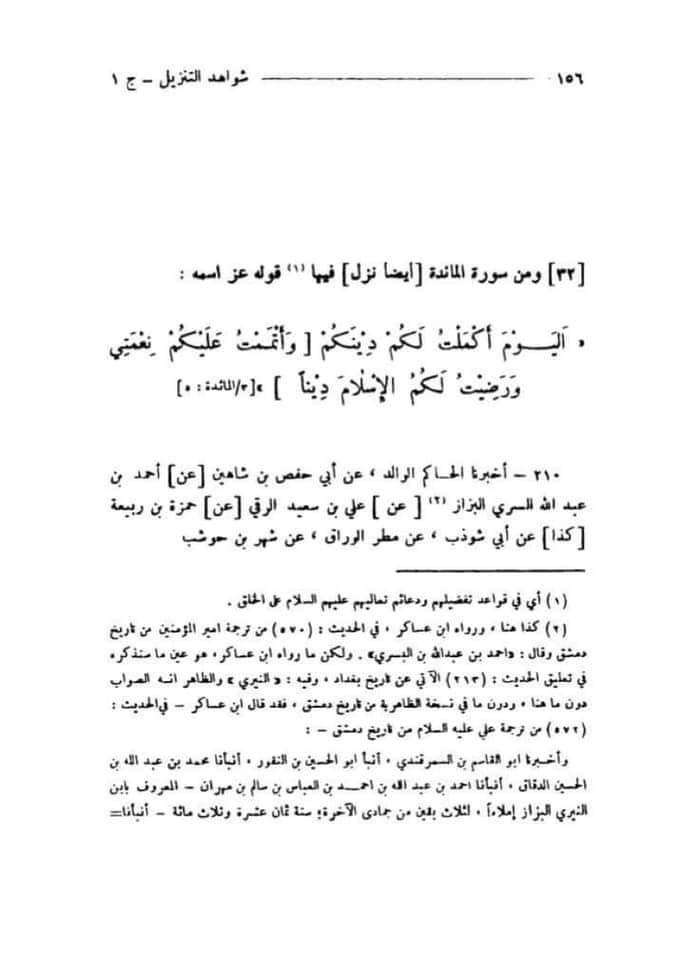 ١٥٦ ــــــ شواهد التنزيل ــ ج ١
[٣٢] ومن سورة المائدة [أيضاً نزل] فيها (١) قوله عز اسمه :
« اَلْيَـــوْمَ أَكْمَلْتُ لَكُمْ دِيْنَكُمْ [ وَأَتْمَمْتُ عَلَيْكُمْ نِعْمَتِي
وَرَضِيْتُ لَكُمُ الإِسْلَامَ دِيْناً ] »[٣/المائدة : ٥]
٢١٠ – أخبرنا الحـاكم الوالد ، عن أبي حفص بن شاهين [عن] أحمد بن
عبد الله السري البزاز (٢) [ عن ] علي بن سعيد الرقي [عن] حمزة بن ربيعة
[كذا] عن أبي شوذب ، عن مطر الوراق ، عن شهر بن حوشب
(١) أي في قواعد تفضيلهم ودعائم تعاليهم عليهم السلام على الخلق .
(٢) كذا هنا ، ورواه ابن عساكر ، في الحديث : (٥٧٠) من ترجمة امير المؤمنين من تاريخ
دمشق وقال : «احمد بن عبدالله بن البسري» . ولكن ما رواه ابن عساكر، هو عين ما سنذكره
في تعليق الحديث : (٢١٣) الآتي عن تاريخ بغداد ، وفيه : «النيري» والظاهر انـه الصواب
دون ما هنا ، ودون ما في نسخة الظاهرية من تاريخ دمشق ، فقد قال ابن عساكر – في الحديث :
(٥٧٢) من ترجمة علي عليه السلام من تاريخ دمشق – :
وأخـبرنا ابو القاسم بن السمرقندي ، أنبأ ابو الحسين بن النقور ، أنبأنا محمد بن عبد الله بن
الحسين الدقاق ، أنبأنا احمد بن عبد الله بن احمـــد بن العباس بن سالم بن مهران – المعروف بابن
النيري البزاز إملاءاً ، لثلاث بقين من جمادى الآخرة؛ سنة ثمان عشرة وثلاث مائة – أنبأنا=